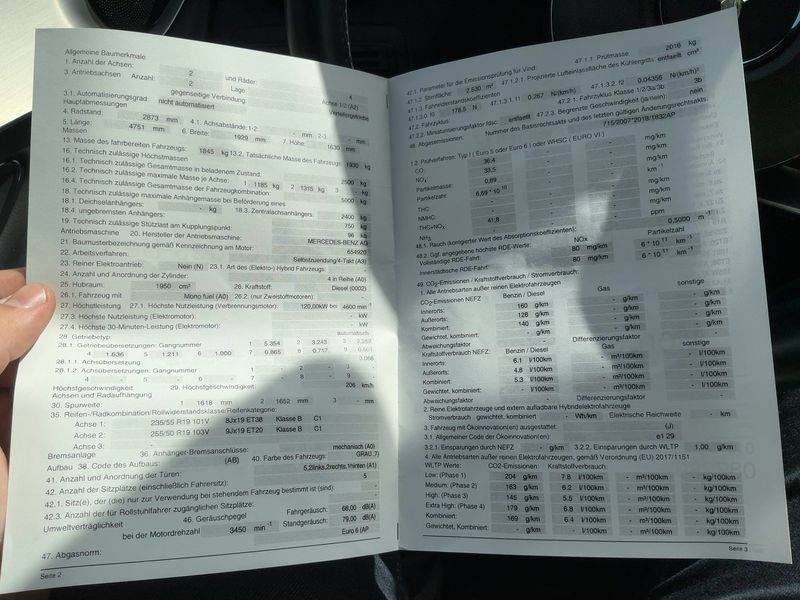 Allgemeine Baumerkmale
1. Anzahl der Achsen: 2 und Räder: 4
3. Antriebsachsen Anzahl: 2 Lage Achse 1/2 (A2)
gegenseitige Verbindung Verteilergetriebe
3.1. Automatisierungsgrad: nicht automatisiert
Hauptabmessungen
4. Radstand: 2873 mm 4.1. Achsabstände: 1-2: - mm 2-3: - mm
5. Länge: 4751 mm 6. Breite: 1929 mm 7. Höhe: 1639 mm
Massen
13. Masse des fahrbereiten Fahrzeugs: 1845 kg 13.2. Tatsächliche Masse des Fahrzeugs: 1930 kg
16. Technisch zulässige Höchstmassen
16.1. Technisch zulässige Gesamtmasse in beladenem Zustand: 2500 kg
16.2. Technisch zulässige maximale Masse je Achse: 1 1185 kg 2 1315 kg 3 - kg
16.4. Technisch zulässige Gesamtmasse der Fahrzeugkombination: 5000 kg
18. Technisch zulässige maximale Anhängemasse bei Beförderung eines
18.1. Deichselanhängers: - kg 18.3. Zentralachsanhängers: 2400 kg
18.4. ungebremsten Anhängers: 750 kg
19. Technisch zulässige Stützlast am Kupplungspunkt: 96 kg
Antriebsmaschine 20. Hersteller der Antriebsmaschine: MERCEDES-BENZ AG
21. Baumusterbezeichnung gemäß Kennzeichnung am Motor: 654920
22. Arbeitsverfahren: Selbstzündung/4-Takt (A3)
23. Reiner Elektroantrieb: Nein (N) 23.1. Art des (Elektro-) Hybrid Fahrzeugs:
24. Anzahl und Anordnung der Zylinder: 4 in Reihe (A0)
25. Hubraum: 1950 cm³ 26. Kraftstoff: Diesel (0002)
26.1. Fahrzeug mit Mono fuel (A0) 26.2. (nur Zweistoffmotoren):
27. Höchstleistung 27.1. Höchste Nutzleistung (Verbrennungsmotor): 120,00kW bei 4600 min⁻¹
27.3. Höchste Nutzleistung (Elektromotor): - kW
27.4. Höchste 30-Minuten-Leistung (Elektromotor): - kW
28. Getriebetyp: automatisch
28.1. Getriebeübersetzungen: Gangnummer 1 5.354 2 3.243 3 2.252
4 1.636 5 1.211 6 1.000 7 0.865 8 0.717 9 0.601
28.1.1. Achsübersetzung:
28.1.2. Achsübersetzungen: Gangnummer 1 - 2 - 3 -
4 - 5 - 6 - 7 - 8 - 9 -
Höchstgeschwindigkeit 29. Höchstgeschwindigkeit: 206 km/h
Achsen und Radaufhängung
30. Spurweite: 1 1618 mm 2 1652 mm 3 - mm
35. Reifen-/Radkombination/Rollwiderstandsklasse/Reifenkategorie:
Achse 1: 235/55 R19 101V 8Jx19 ET38 Klasse B C1
Achse 2: 255/50 R19 103V 9Jx19 ET20 Klasse B C1
Achse 3: -
Bremsanlage 36. Anhänger-Bremsanschlüsse: mechanisch (A0)
Aufbau 38. Code des Aufbaus: (AB) 40. Farbe des Fahrzeugs: GRAU ,7)
41. Anzahl und Anordnung der Türen: 5,2links,2rechts,1hinten (A1)
42. Anzahl der Sitzplätze (einschließlich Fahrersitz): 5
42.1. Sitz(e), der (die) nur zur Verwendung bei stehendem Fahrzeug bestimmt ist (sind): -
42.3. Anzahl der für Rollstuhlfahrer zugänglichen Sitzplätze: -
Umweltverträglichkeit 46. Geräuschpegel Fahrgeräusch: 68,00 dB(A)
bei der Motordrehzahl 3450 min⁻¹ Standgeräusch: 79,00 dB(A)
47. Abgasnorm: Euro 6 (AP
Seite 2
47.1. Parameter für die Emissionsprüfung für Vind: 47.1.1. Prüfmasse: 2016 kg
47.1.2. Stirnfläche: 2.530 m² 47.1.2.1. Projizierte Lufteinlassfläche des Kühlergrills: entfaellt cm²
47.1.3. Fahrwiderstandskoeffizienten
47.1.3.0. f0 178.5 N 47.1.3.1. f1 0.267 N/(km/h) 47.1.3.2. f2 0.04356 N/(km/h)²
47.2. Fahrzyklus 47.2.1. Fahrzyklus Klasse 1/2/3a/3b: 3b
47.2.2. Miniaturisierungsfaktor fdsc: entfaellt 47.2.3. Begrenzte Geschwindigkeit (ja/nein): nein
48. Abgasemissionen: Nummer des Basisrechtsakts und des letzten gültigen Änderungsrechtsakts:
715/2007*2018/1832AP
1.2. Prüfverfahren: Typ I ( Euro 5 oder Euro 6 ) oder WHSC ( EURO VI )
CO: 36,4 - - mg/km
NOₓ: 33,5 - - mg/km
Partikelmasse: 0,89 - - mg/km
Partikelzahl: 6,69 * 10¹⁰ - - km⁻¹
THC: - - - mg/km
NMHC: - - - mg/km
THC+NOₓ: 41,8 - - mg/km
NH₃ - - - ppm
48.1. Rauch (korrigierter Wert des Absorptionskoeffizienten): 0,5000 m⁻¹
48.2. Ggf. angegebene höchste RDE-Werte: NOx Partikelzahl
Vollständige RDE-Fahrt: 80 mg/km 6 * 10¹¹ km⁻¹
Innerstädtische RDE-Fahrt: 80 mg/km 6 * 10¹¹ km⁻¹
49. CO₂-Emissionen / Kraftstoffverbrauch / Stromverbrauch:
1. Alle Antriebsarten außer reinen Elektrofahrzeugen
CO₂-Emissionen NEFZ Benzin / Diesel Gas sonstige
Innerorts: 160 g/km - g/km - g/km
Außerorts: 128 g/km - g/km - g/km
Kombiniert: 140 g/km - g/km - g/km
Gewichtet, kombiniert: - g/km - g/km - g/km
Abweichungsfaktor - Differenzierungsfaktor -
Kraftstoffverbrauch NEFZ: Benzin / Diesel Gas sonstige
Innerorts: 6.1 l/100km - m³/100km - l/100km
Außerorts: 4.8 l/100km - m³/100km - l/100km
Kombiniert: 5.3 l/100km - m³/100km - l/100km
Gewichtet, kombiniert: - l/100km - m³/100km - l/100km
Abweichungsfaktor - Differenzierungsfaktor -
2. Reine Elektrofahrzeuge und extern aufladbare Hybridelektrofahrzeuge
Stromverbrauch gewichtet, kombiniert - Wh/km Elektrische Reichweite - km
3. Fahrzeug mit Ökoinnovation(en) ausgestattet: (J)
3.1. Allgemeiner Code der Ökoinnovation(en): e1 29
3.2.1. Einsparungen durch NEFZ - g/km 3.2.2. Einsparungen durch WLTP 1,00 g/km
4. Alle Antriebsarten außer reinen Elektrofahrzeugen, gemäß Verordnung (EU) 2017/1151
WLTP Werte: CO2-Emissionen: Kraftstoffverbrauch:
Low: (Phase 1) 204 g/km 7.8 l/100km - m³/100km - kg/100km
Medium: (Phase 2) 163 g/km 6.2 l/100km - m³/100km - kg/100km
High: (Phase 3) 145 g/km 5.5 l/100km - m³/100km - kg/100km
Extra High: (Phase 4) 179 g/km 6.8 l/100km - m³/100km - kg/100km
Kombiniert: 169 g/km 6.4 l/100km - m³/100km - kg/100km
Gewichtet, Kombiniert: - g/km - l/100km - m³/100km - kg/100km
Seite 3